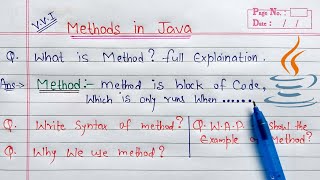 V.V.I
Methods in Java
Page No.:
Date: / /
Q. What is Method? full Explaination.
Ans:-> Method:- Method is block of Code,
Which is only runs when ......,
Q. Write Syntax of method?
Q. W.A.P. Show the
Example of Method?
Q. Why We use method?